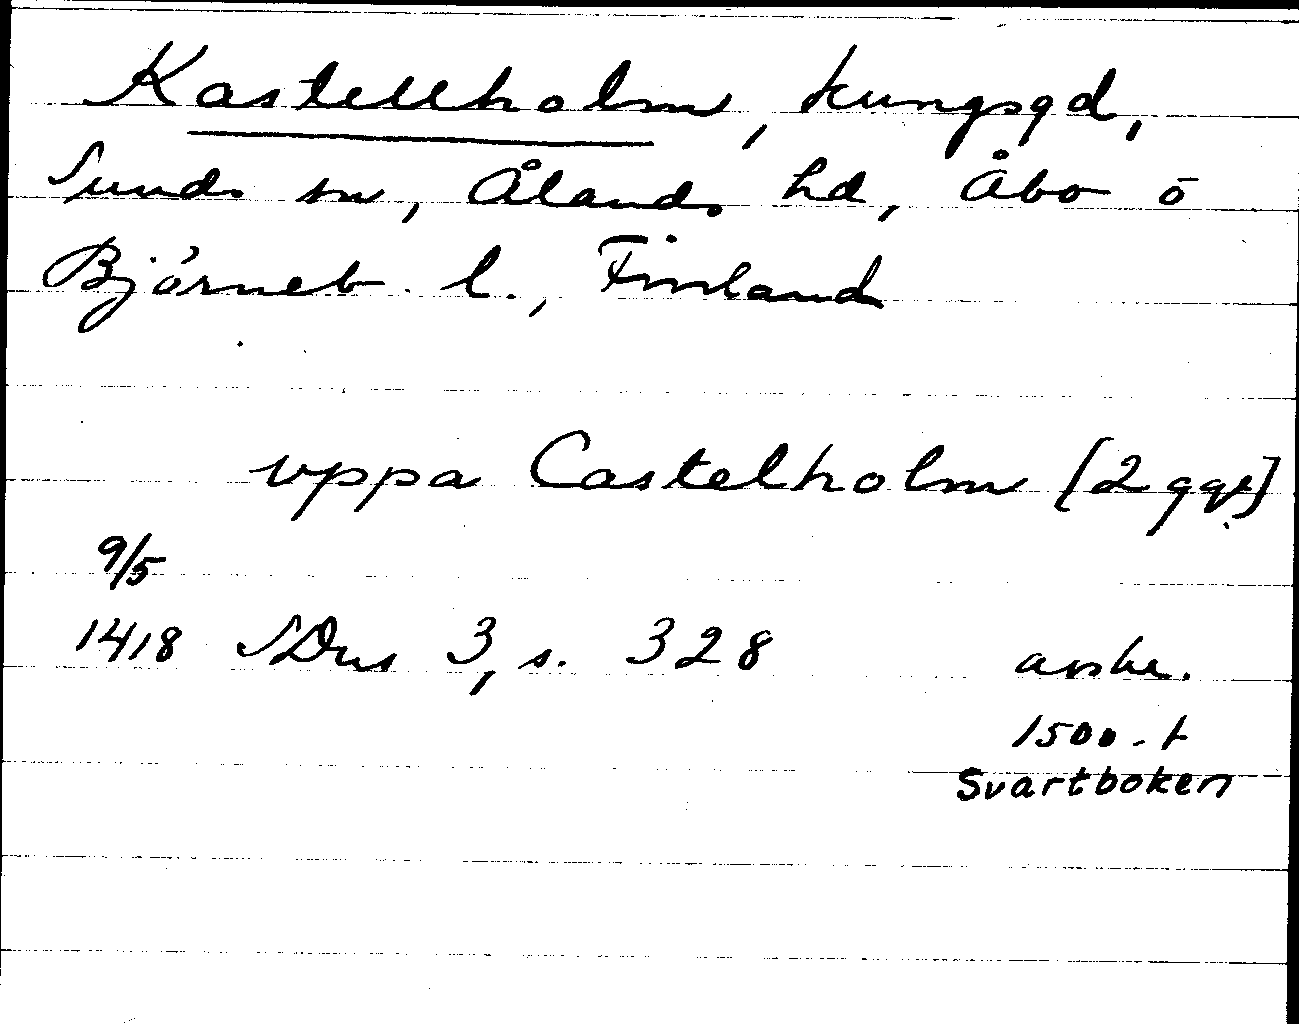 Kastellholm, kungsgd,
Sunds sn, Ålands hd, Åbo o
Björneb. l., Finland
vppa Castelholm [2 ggr]
9/5
1418 SDns 3, s. 328 avskr.
1500-t
Svartboken